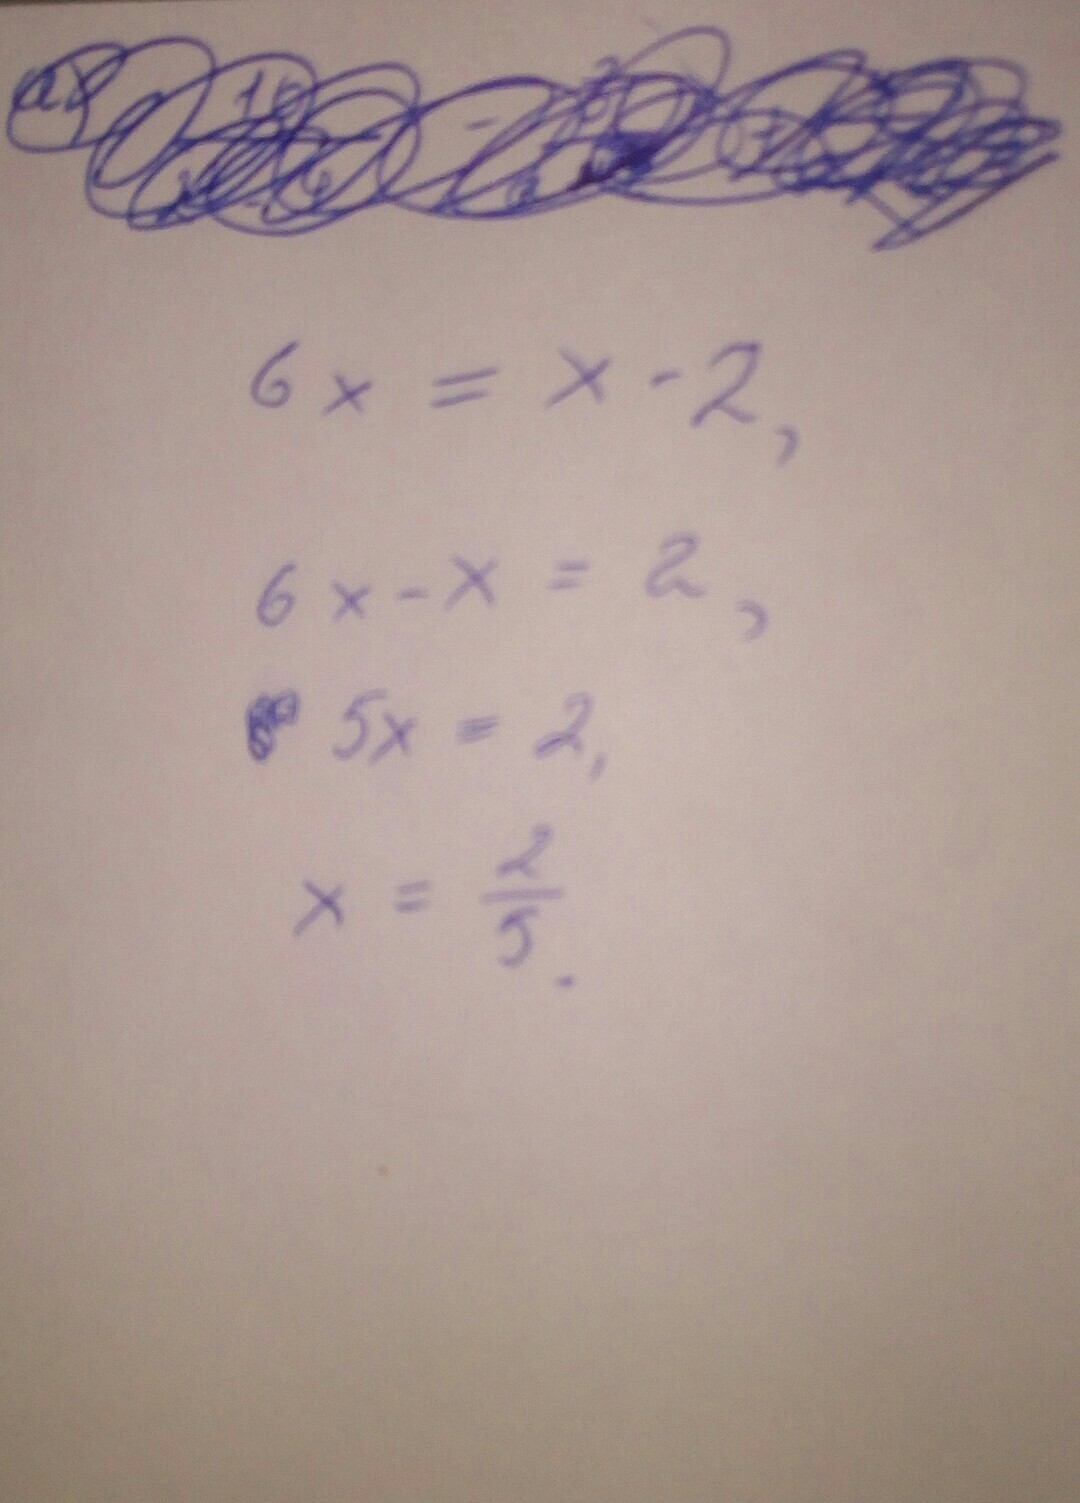 6x = x - 2,
6x - x = 2,
5x = 2,
x = 2/5.